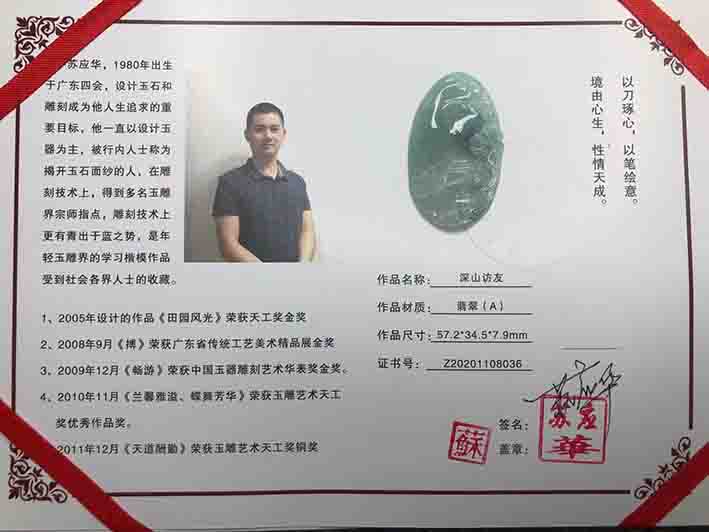 苏应华，1980年出生
于广东四会，设计玉石和
雕刻成为他人生追求的重
要目标，他一直以设计玉
器为主，被行内人士称为
揭开玉石面纱的人，在雕
刻技术上，得到多名玉雕
界宗师指点，雕刻技术上
更有青出于蓝之势，是年
轻玉雕界的学习楷模作品
受到社会各界人士的收藏。
1、2005年设计的作品《田园风光》荣获天工奖金奖
2、2008年9月《搏》荣获广东省传统工艺美术精品展金奖
3、2009年12月《畅游》荣获中国玉器雕刻艺术华表奖金奖。
4、2010年11月《兰馨雅溢、蝶舞芳华》荣获玉雕艺术天工
奖优秀作品奖。
2011年12月《天道酬勤》荣获玉雕艺术天工奖铜奖
以刀琢心，以笔绘意。
境由心生，性情天成。
作品名称：深山访友
作品材质：翡翠（A）
作品尺寸：57.2*34.5*7.9mm
证书号：Z20201108036
签名：苏应华
盖章：
蘇
苏应
華